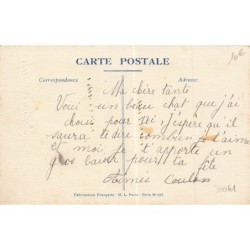 CARTE POSTALE
Correspondance Adresse
Ma chère tante
Voici un beau chat que j'ai
choisi pour toi, j'espère qu'il
saura te dire combien je t'aime
et moi je t'apporte un
gros baiser pour ta fête
Aimée Coulon
Fabrication Française - M. L. Paris - Série